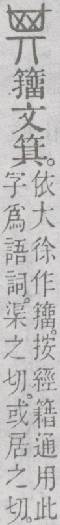 籒文箕。
依大徐作籒。按經籍通用此
字爲語詞。渠之切。或居之切。